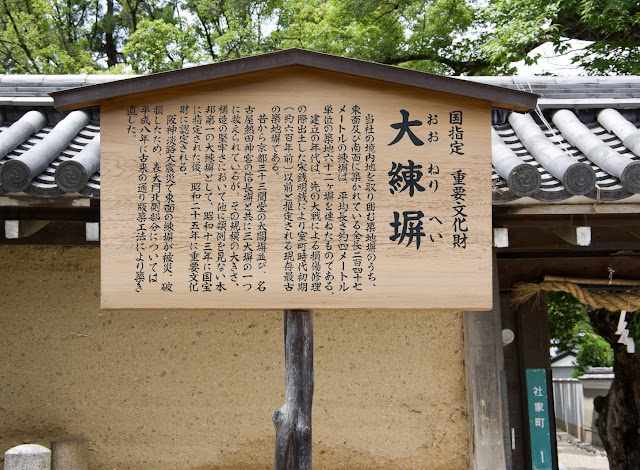 国指定 重要文化財
おお ねり へい
大練塀
当社の境内地を取り囲む築地塀のうち、
東面及び南面に築かれている全長二四七
メートルの練塀は、平均長さ約四メートル
単位の築地六十一ヶ塀を連ねたものである。
建立の年代は、先の大戦による損傷修理
の際出土した宋銭明銭により室町時代初期
(約六百年前)以前と推定される現存最古
の築地塀である。
昔から京都三十三間堂の太閤塀並び、名
古屋熱田神宮の信長塀と共に三大塀の一つ
に数えられているが、その規模の大きさ、
構造の堅牢さにおいて他に類例を見ない本
邦第一の大練塀として、昭和十三年に国宝
に指定された後、昭和二十五年に重要文化
財に認定される。
阪神淡路大震災で東面の練塀が被災、破
損したため、表大門北側部分については
平成八年に古来の通り版築工法により築き
直した。
社家町
1